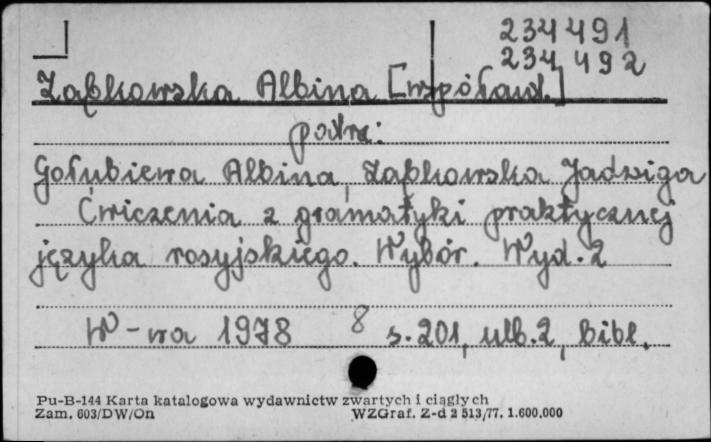 234 491
234 492
Ząbkowska Albina [współaut.]
patrz:
Gołubiewa Albina, Ząbkowska Jadwiga
Ćwiczenia z gramatyki praktycznej
języka rosyjskiego. Wybór. Wyd. 2
W-wa 1978 8 s. 201, nlb. 2, bibl.
Pu-B-144 Karta katalogowa wydawnictw zwartych i ciągłych
Zam. 603/DW/On WZGraf. Z-d 2 513/77. 1.600.000